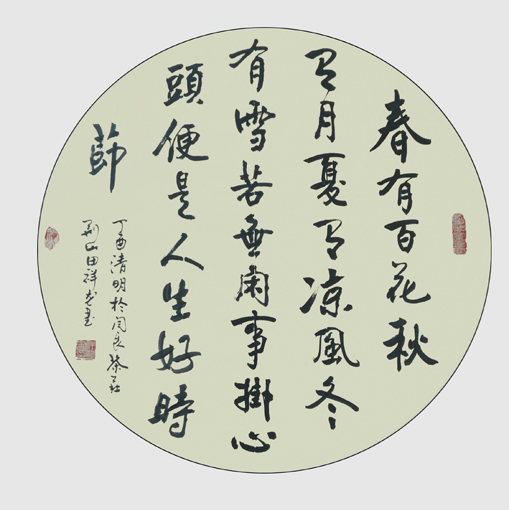 春有百花秋
有月夏有凉風冬
有雪若無闲事掛心
頭便是人生好時
節
丁酉清明於閆良茶社
荆山田祥书